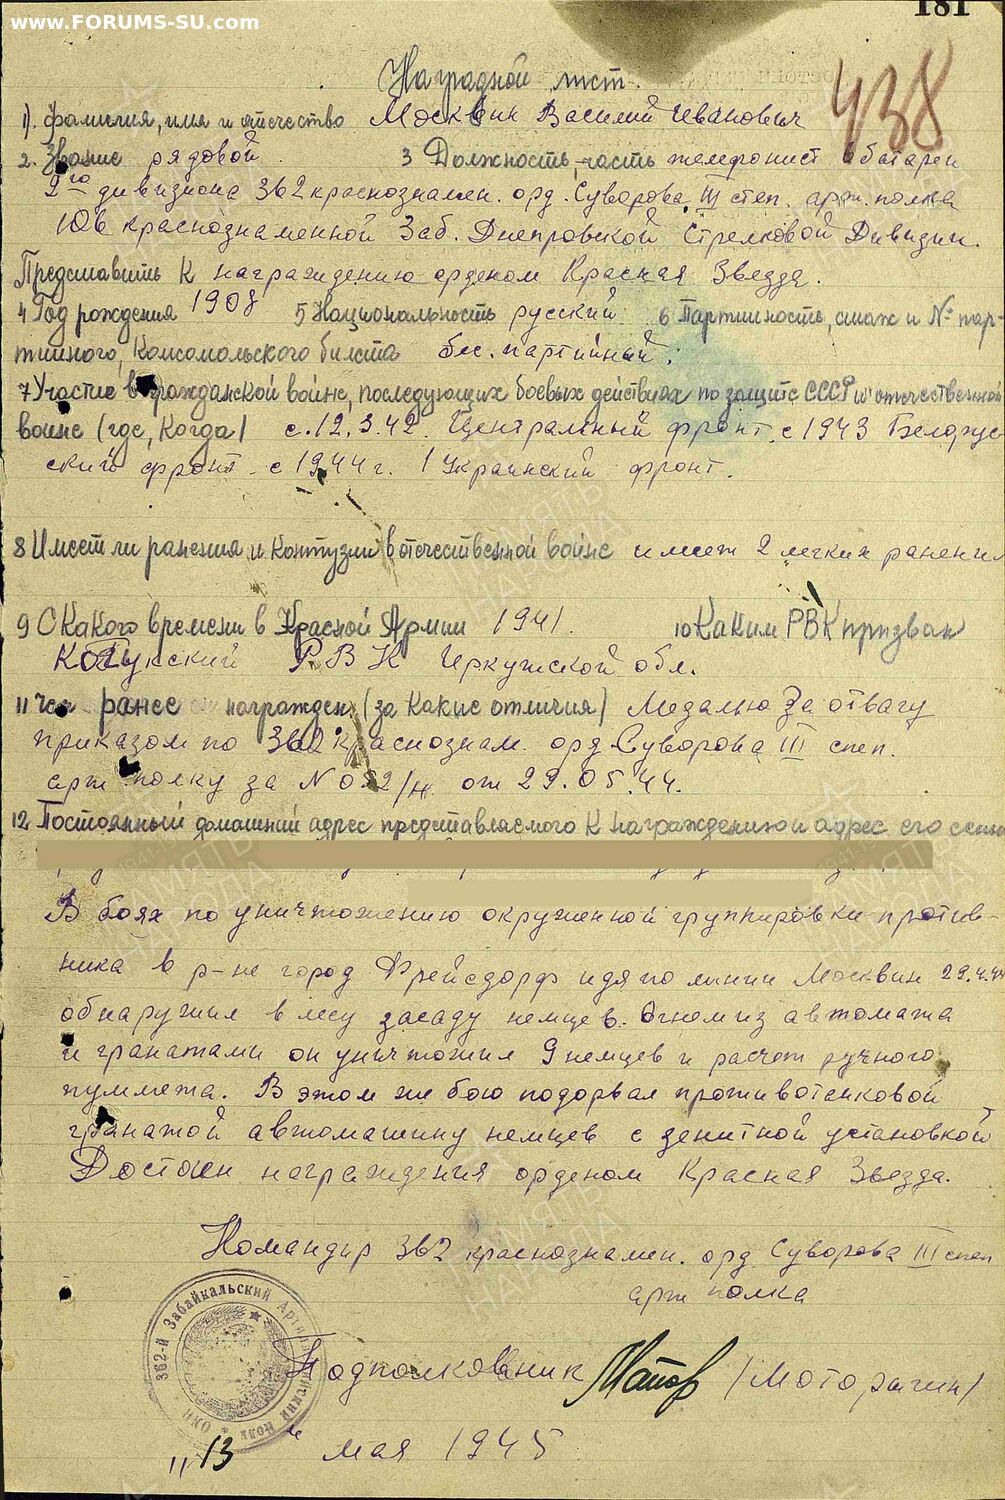 www.FORUMS-SU.com
181
438
Наградной лист.
1). Фамилия, имя и отчество Москвин Василий Иванович
2. Звание рядовой. 3 Должность, часть телефонист 6 батареи
2го дивизиона 362 краснознамен. орд. Суворова III степ. арт. полка
106 краснознаменной Заб. Днепровской Стрелковой Дивизии.
Представить к награждению орденом Красная Звезда.
4 Год рождения 1908 5 Национальность русский 6 Партийность, стаж и № пар-
тийного, Комсомольского билета бес. партийный.
7 Участие в гражданской войне, последующих боевых действиях по защите СССР и отечественной
войне (где, когда) с.12.3.42. Центральный фронт, с 1943 Белорус-
ский фронт с 1944 г. 1 Украинский фронт.
8 Имеет ли ранения и контузии в отечественной войне имеет 2 легких ранения
9 С какого времени в Красной Армии 1941. 10 Каким РВК призван
РВК Иркутской обл.
11 Чем ранее награжден (за какие отличия) Медалью За отвагу
приказом по 362 краснознам. орд. Суворова III степ.
арт полку за N 052/н от 29.05.44.
12 Постоянный домашний адрес представляемого к награждению и адрес его семьи
В боях по уничтожению окруженной группировки против-
ника в р-не город Фрейсдорф идя по линии Москвин 29.4.45
обнаружил в лесу засаду немцев. Огнем из автомата
и гранатами он уничтожил 9 немцев и расчет ручного
пулмета. В этом же бою подорвал противотенковой
гранатой автомашину немцев с зенитной установкой
Достоен награждения орденом Красная Звезда.
Командир 362 краснознамен. орд Суворова III степ
арт полка
362-й Забайкальский Артиллерийский полк * НКО
Подполковник /Моторыгин/
"13" мая 1945
ПАМЯТЬ НАРОДА